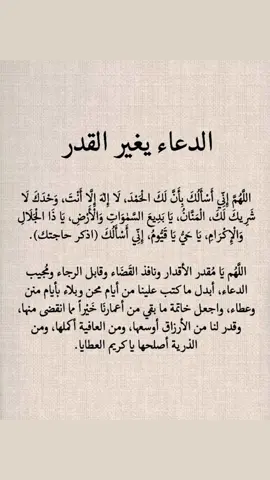 الدعاء يغير القدر
اللَّهُمَّ إِنِّي أَسْأَلُكَ بِأَنَّ لَكَ الْحَمْدَ، لَا إِلَهَ إِلَّا أَنْتَ، وَحْدَكَ لَا
شَرِيكَ لَكَ، الْمَنَّانُ، يَا بَدِيعَ السَّمَوَاتِ وَالْأَرْضِ، يَا ذَا الْجَلَالِ
وَالْإِكْرَامِ، يَا حَيُّ يَا قَيُّومُ، إِنِّي أَسْأَلُكَ (اذكر حاجتك).
اللَّهُم يَا مُقدر الأقدار ونافذ القَضَاء وقابل الرجاء ومُجيب
الدعاء، أبدل ما كتب علينا من أيام محن وبلاء بأيام منن
وعطاء، واجعل خاتمة ما بقي من أعمارنَا خَيْراً مما انقضى منها،
وقدر لنا من الأرزاق أوسعها، ومن العافية أكملها، ومن
الذرية أصلحها ياكريم العطايا.